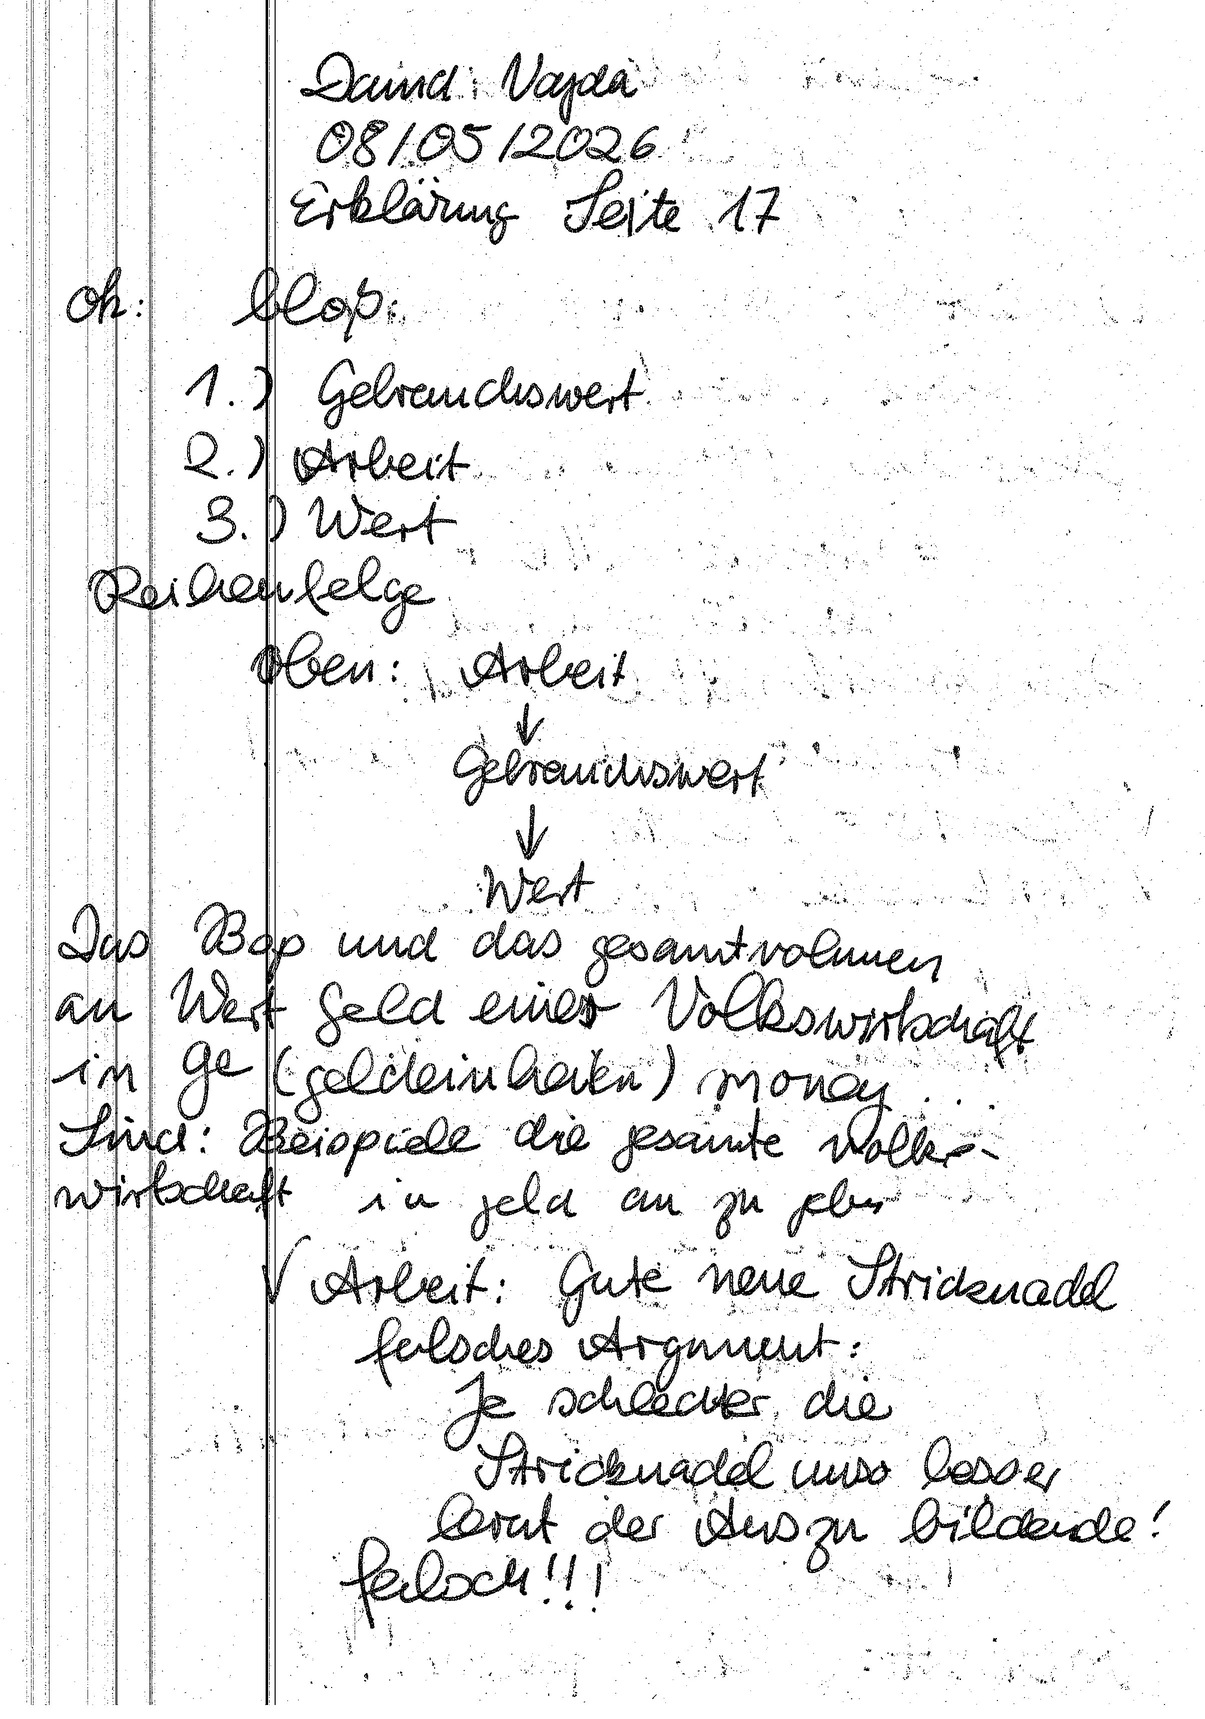 David Vajda
08/05/2026
Erklärung Seite 17
ok: bloß:
1.) Gebrauchswert
2.) Arbeit
3.) Wert
Reihenfolge
oben: Arbeit
↓
Gebrauchswert
↓
Wert
Das Bop und das gesamtvolumen
an Wert Geld einer Volkswirtschaft
in ge (geldeinheiten) money ...
Sind: Beispiele die gesamte volks-
wirtschaft in geld an zu geben
√ Arbeit: Gute neue Stricknadel
falsches Argument:
Je schlechter die
Stricknadel umso besser
lernt der Auszu bildende!
falsch!!!